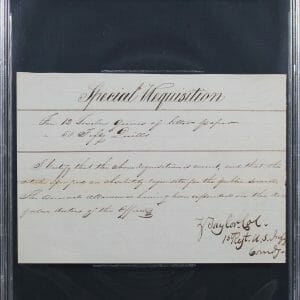 Special Requisition
For 12 Twelve Quires of letter paper
" 50 Fifty Quills
I Certify that the above requisition is correct, and that the
articles specified are absolutely requisite for the public service,
the annual allowance having been expended in the re-
gular duties of the Office
Z. Taylor Col.
1st Regt. U.S. Infy
Comdg.